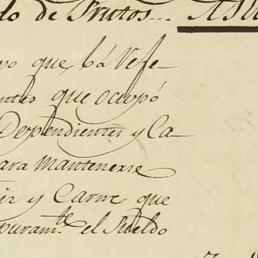 do de Frutos...
po que há Vese
ntes que ocupó
Dependientes y Ca
ara mantenerse
ir y Carne que
puram.te el Sueldo